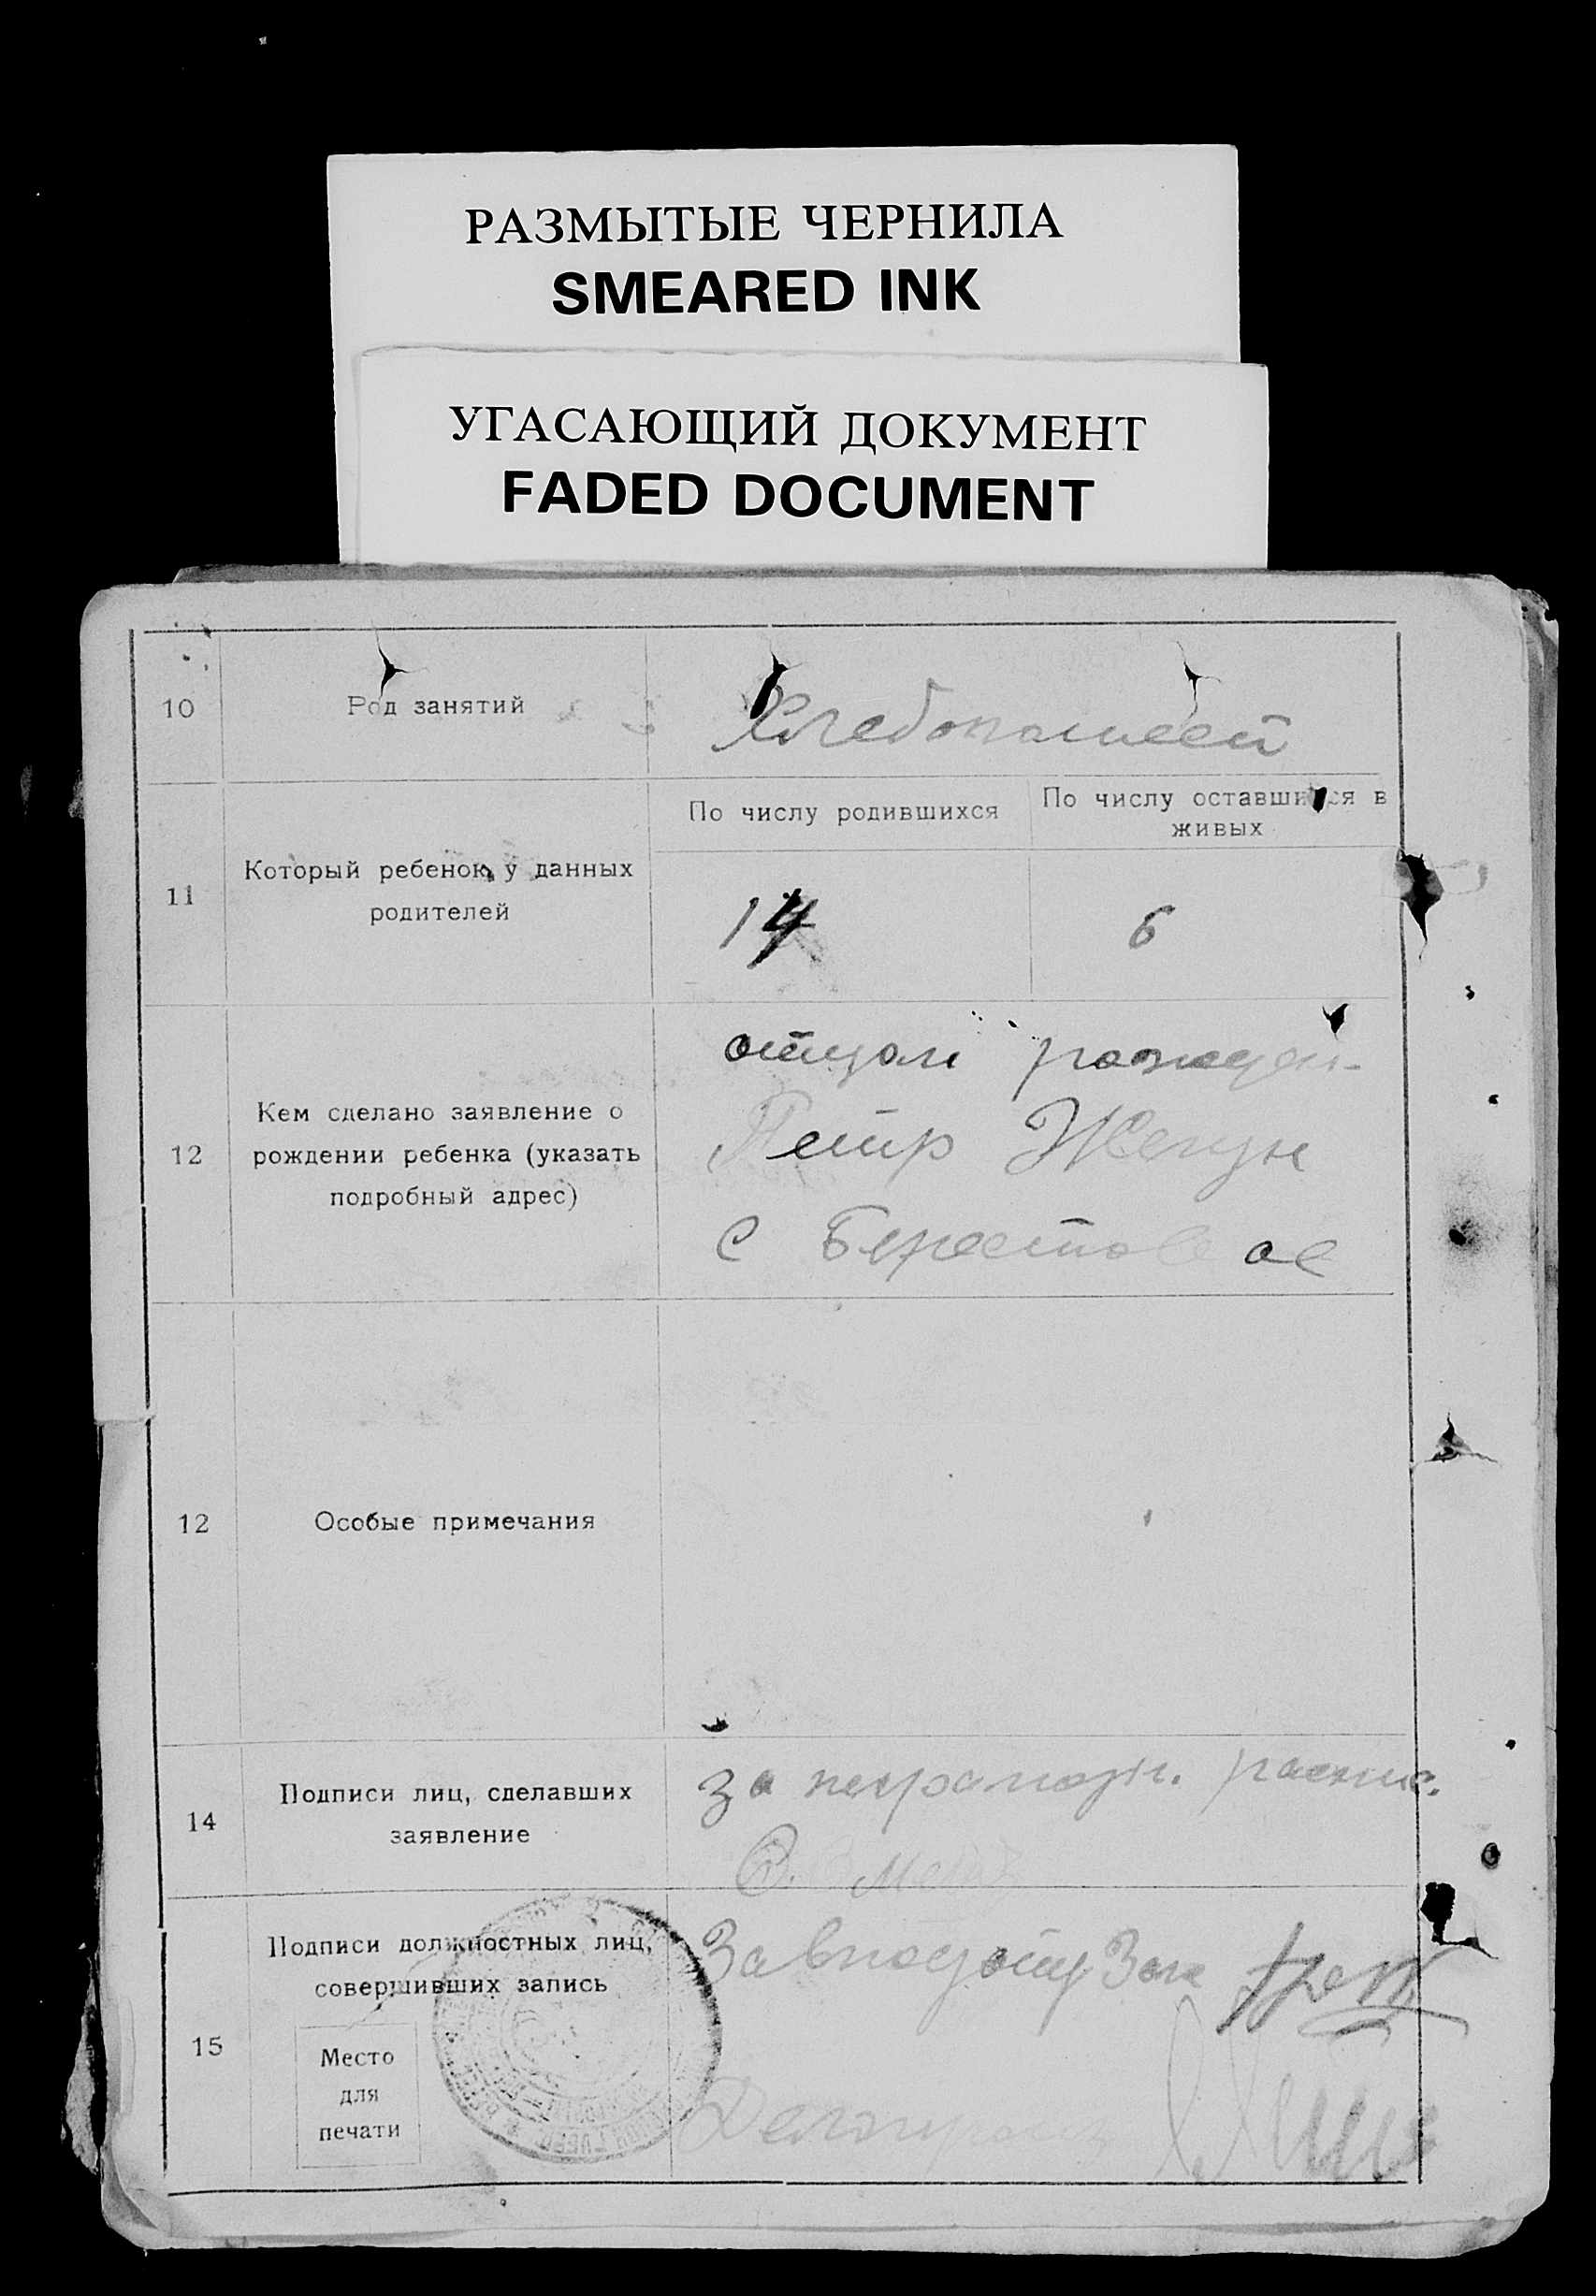 РАЗМЫТЫЕ ЧЕРНИЛА
SMEARED INK
УГАСАЮЩИЙ ДОКУМЕНТ
FADED DOCUMENT
10
Род занятий
Хлебопашест
11
Который ребенок у данных
родителей
По числу родившихся
14
По числу оставшихся в
живых
6
12
Кем сделано заявление о
рождении ребенка (указать
подробный адрес)
отцом
Петр
с Берестовое
12
Особые примечания
14
Подписи лиц, сделавших
заявление
за неграмотн. распис.
15
Подписи должностных лиц,
совершивших запись
Место
для
печати